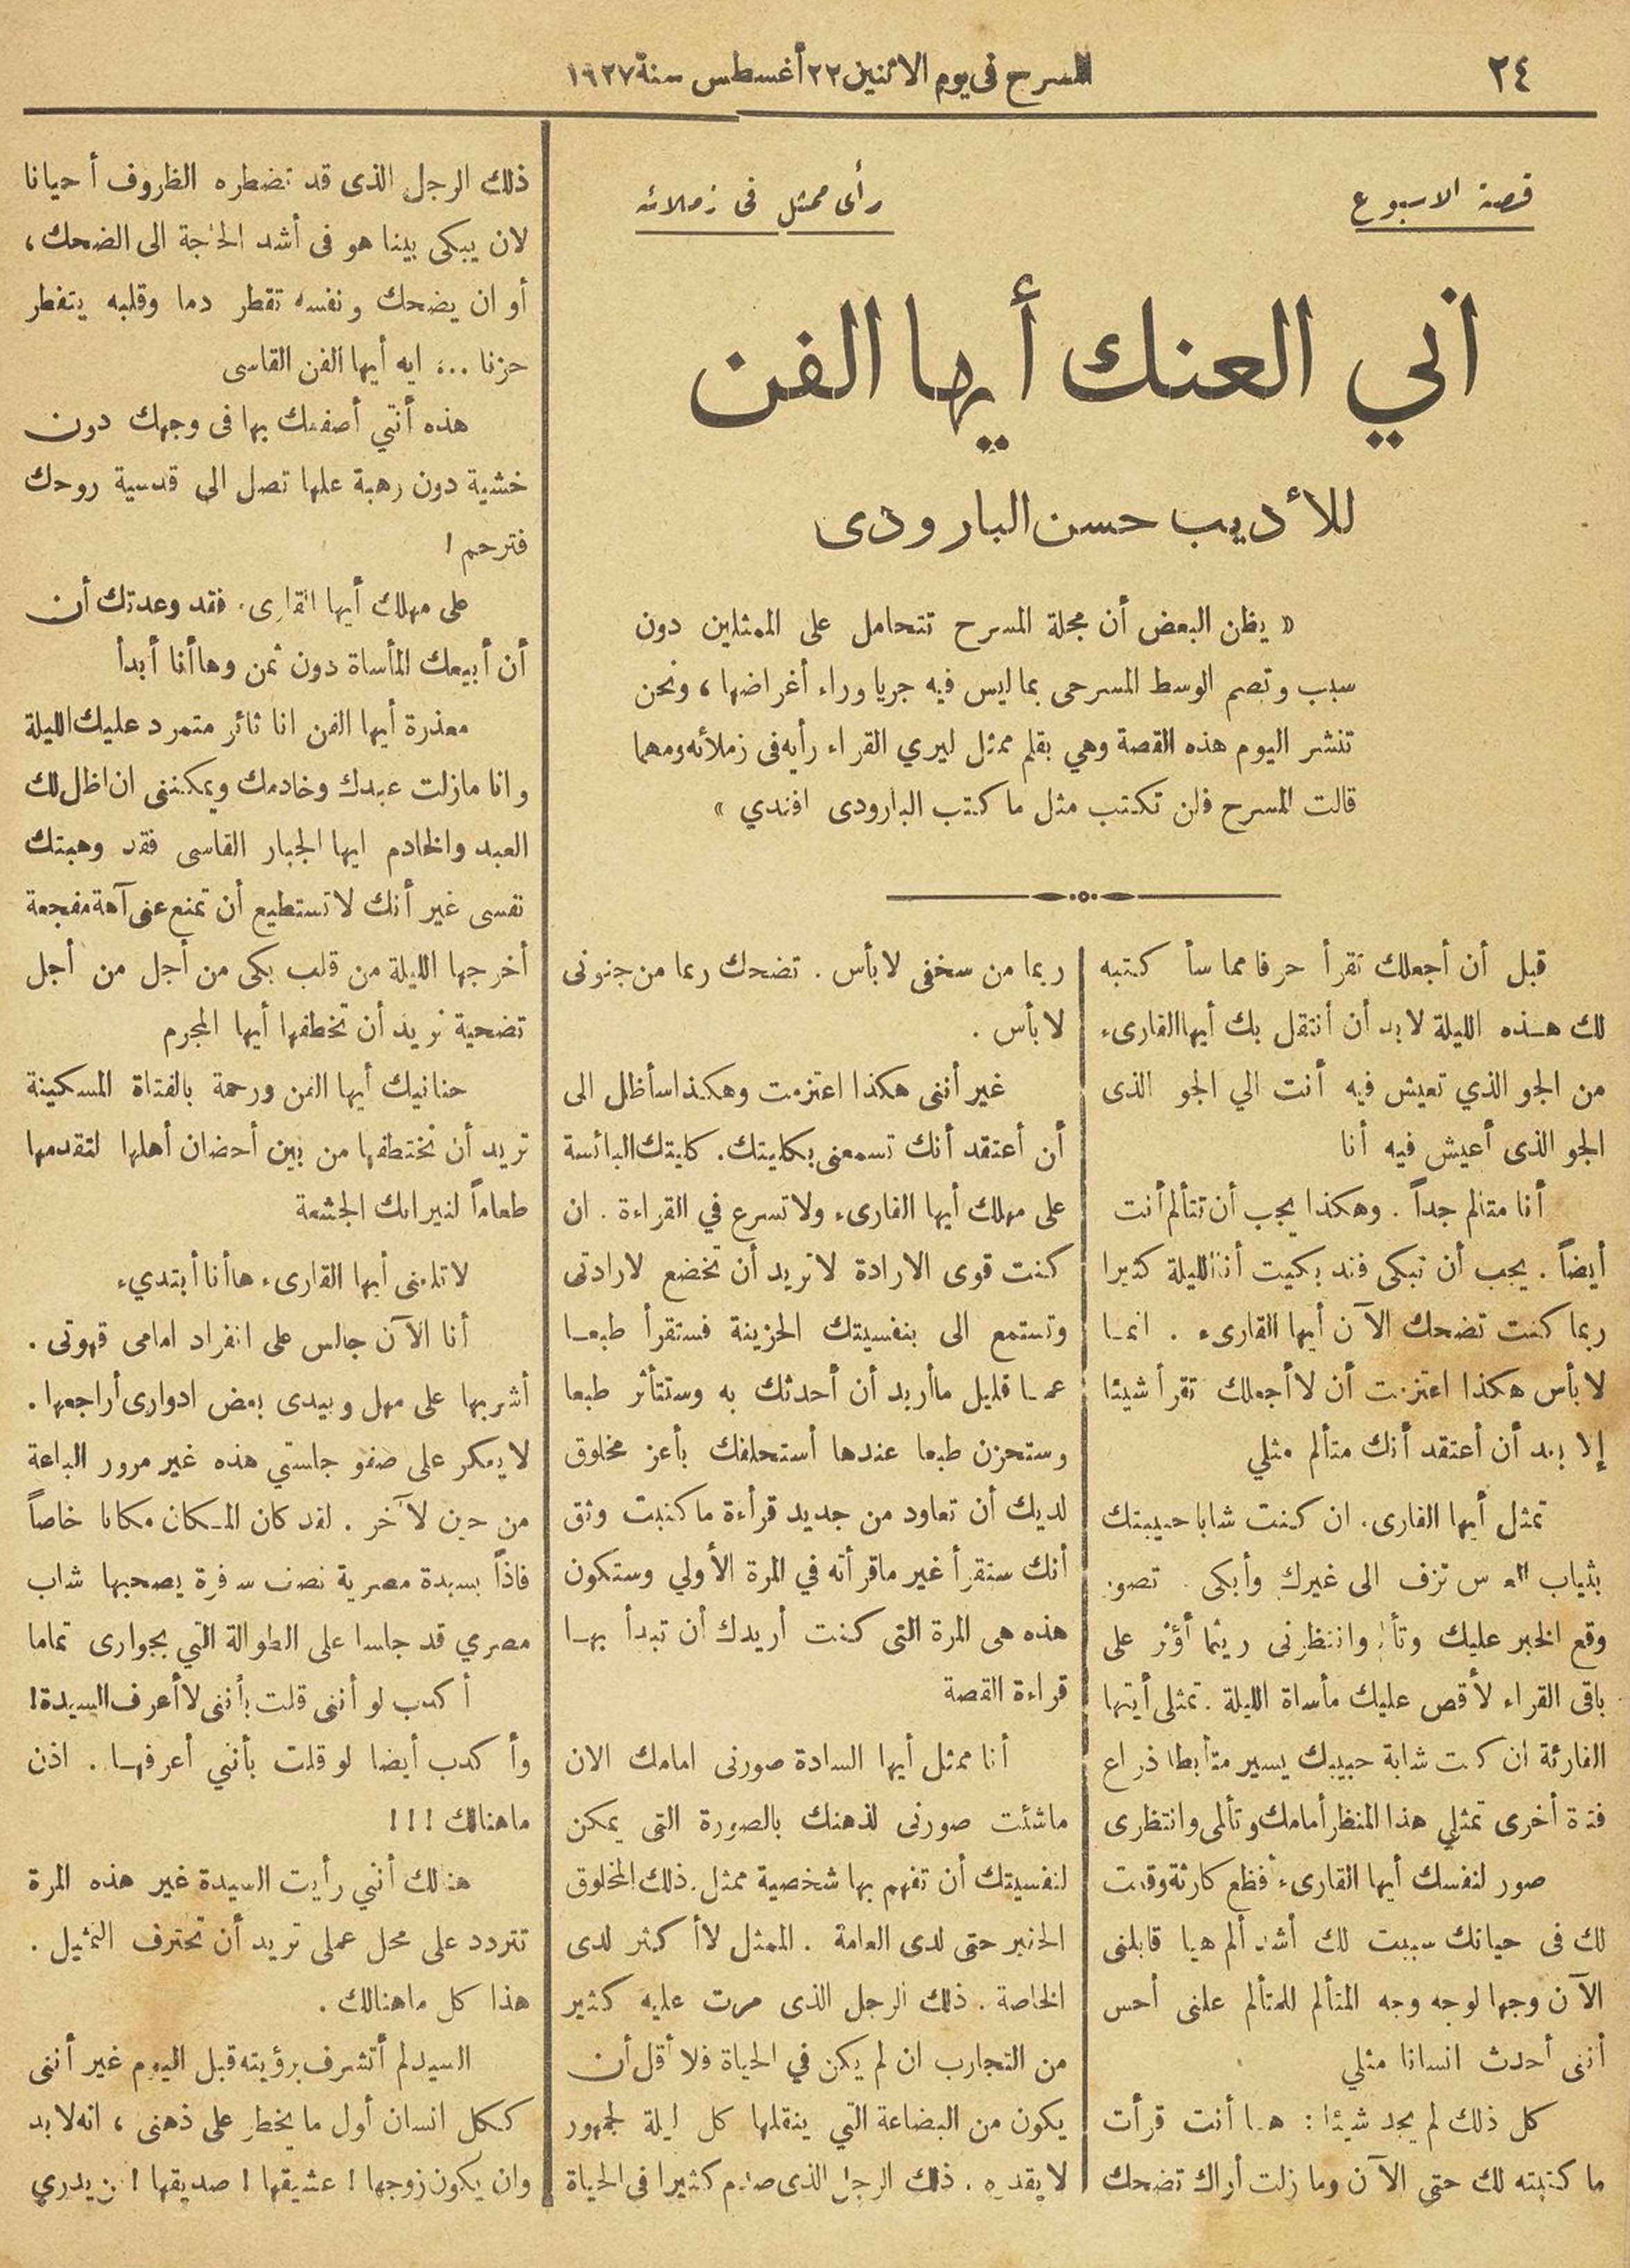 ٢٤
المسرح فى يوم الاثنين ٢٢ أغسطس سنة ١٩٢٧
قصة الاسبوع
رأى ممثل فى زملائه
اني العنك أيها الفن
للأديب حسن البارودى
« يظن البعض أن مجلة المسرح تتحامل على الممثلين دون
سبب وتصم الوسط المسرحى بما ليس فيه جريا وراء أغراضها ، ونحن
ننشر اليوم هذه القصة وهي بقلم ممثل ليري القراء رأيه فى زملائه ومهما
قالت المسرح فلن تكتب مثل ما كتب البارودى افندي »
قبل أن أجعلك تقرأ حرفا مما سأ كتبه
لك هذه الليلة لا بد أن أنتقل بك أيها القارىء
من الجو الذي تعيش فيه أنت الي الجو الذى
الجو الذى أعيش فيه أنا
أنا متألم جداً . وهكذا يجب أن تتألم أنت
أيضاً . يجب أن تبكى فقد بكيت أنا الليلة كثيرا
ربما كنت تضحك الآن أيها القارىء . انما
لا بأس هكذا اعتزمت أن لا أجعلك تقرأ شيئا
إلا بعد أن أعتقد أنك متألم مثلي
تمثل أيها القارىء ان كنت شابا حبيبتك
بثياب العرس تزف الى غيرك وأبكى . تصور
وقع الخبر عليك وتألم وانتظرنى ريثما أؤثر على
باقى القراء لأقص عليك مأساة الليلة . تمثلى أيتها
القارئة ان كنت شابة حبيبك يسير متأبطا ذراع
فتاة أخرى تمثلي هذا المنظر أمامك وتألمى وانتظرى
صور لنفسك أيها القارىء أفظع كارثة وقعت
لك فى حياتك سببت لك أشد ألم هيا قابلنى
الآن وجها لوجه وجه المتألم للمتألم علنى أحس
أننى أحدث انسانا مثلي
كل ذلك لم يجد شيئا : ها أنت قرأت
ما كتبته لك حتى الآن وما زلت أراك تضحك
ربما من سخفى لا بأس . تضحك ربما من جنونى
لا بأس .
غير أننى هكذا اعتزمت وهكذا سأظل الى
أن أعتقد أنك تسمعنى بكليتك . كليتك البائسة
على مهلك أيها القارىء ولا تسرع في القراءة . ان
كنت قوى الارادة لا تريد أن تخضع لارادتى
وتستمع الى بنفسيتك الحزينة فستقرأ طبعا
عما قليل ما أريد أن أحدثك به وستتأثر طبعا
وستحزن طبعا عندها أستحلفك بأعز مخلوق
لديك أن تعاود من جديد قرأءة ما كتبت وثق
أنك ستقرأ غير ما قرأته في المرة الأولي وستكون
هذه هى المرة التى كنت أريدك أن تبدأ بها
قراءة القصة
أنا ممثل أيها السادة صورنى امامك الان
ماشئت صورنى لذهنك بالصورة التى يمكن
لنفسيتك أن تفهم بها شخصية ممثل . ذلك المخلوق
الحقير حتى لدى العامة . الممثل لا أكثر لدى
الخاصة . ذلك الرجل الذى مرت عليه كثير
من التجارب ان لم يكن في الحياة فلا أقل أن
يكون من البضاعة التي ينقلها كل ليلة لجمهور
لا يقدره . ذلك الرجل الذى صادم كثيرا فى الحياة
ذلك الرجل الذى قد تضطره الظروف أحيانا
لان يبكى بينا هو فى أشد الحاجة الى الضحك ،
أو ان يضحك ونفسه تقطر دما وقلبه يتفطر
حزنا ... ايه أيها الفن القاسى
هذه أنتي أصفعك بها فى وجهك دون
خشية دون رهبة علها تصل الى قدسية روحك
فترحم !
على مهلك أيها القارىء فقد وعدتك أن
أن أبيعك المأساة دون ثمن وها أنا أبدأ
معذرة أيها الفن انا ثائر متمرد عليك الليلة
وانا مازلت عبدك وخادمك ويمكننى ان اظل لك
العبد والخادم ايها الجبار القاسى فقد وهبتك
نفسى غير أنك لا تستطيع أن تمنع عنى آهة مفجعة
أخرجها الليلة من قلب بكى من أجل من أجل
تضحية تريد أن تخطفها أيها المجرم
حنانيك أيها الفن ورحمة بالفتاة المسكينة
تريد أن تختطفها من بين أحضان أهلها لتقدمها
طعاماً لنيرانك الجشعة
لا تلمنى أيها القارىء ها أنا أبتدىء
أنا الآن جالس على انفراد امامى قهوتى .
أشربها على مهل وبيدى بعض ادوارى أراجعها .
لا يعكر على صفو جلستي هذه غير مرور الباعة
من حين لآخر . لقد كان المكان مكانا خاصاً
فاذاً بسيدة مصرية نصف سافرة يصحبها شاب
مصري قد جلسا على الطوالة التي بجوارى تماما
أكذب لو أننى قلت بأننى لا أعرف السيدة !
وأكذب أيضا لو قلت بأنني أعرفها . اذن
ماهنالك ! ! !
هنالك أنني رأيت السيدة غير هذه المرة
تتردد على محل عملى تريد أن تحترف التمثيل .
هذا كل ماهنالك .
السيد لم أتشرف برؤيته قبل اليوم غير أننى
ككل انسان أول ما يخطر على ذهنى ، انه لا بد
وان يكون زوجها ! عشيقها ! صديقها ! من يدري